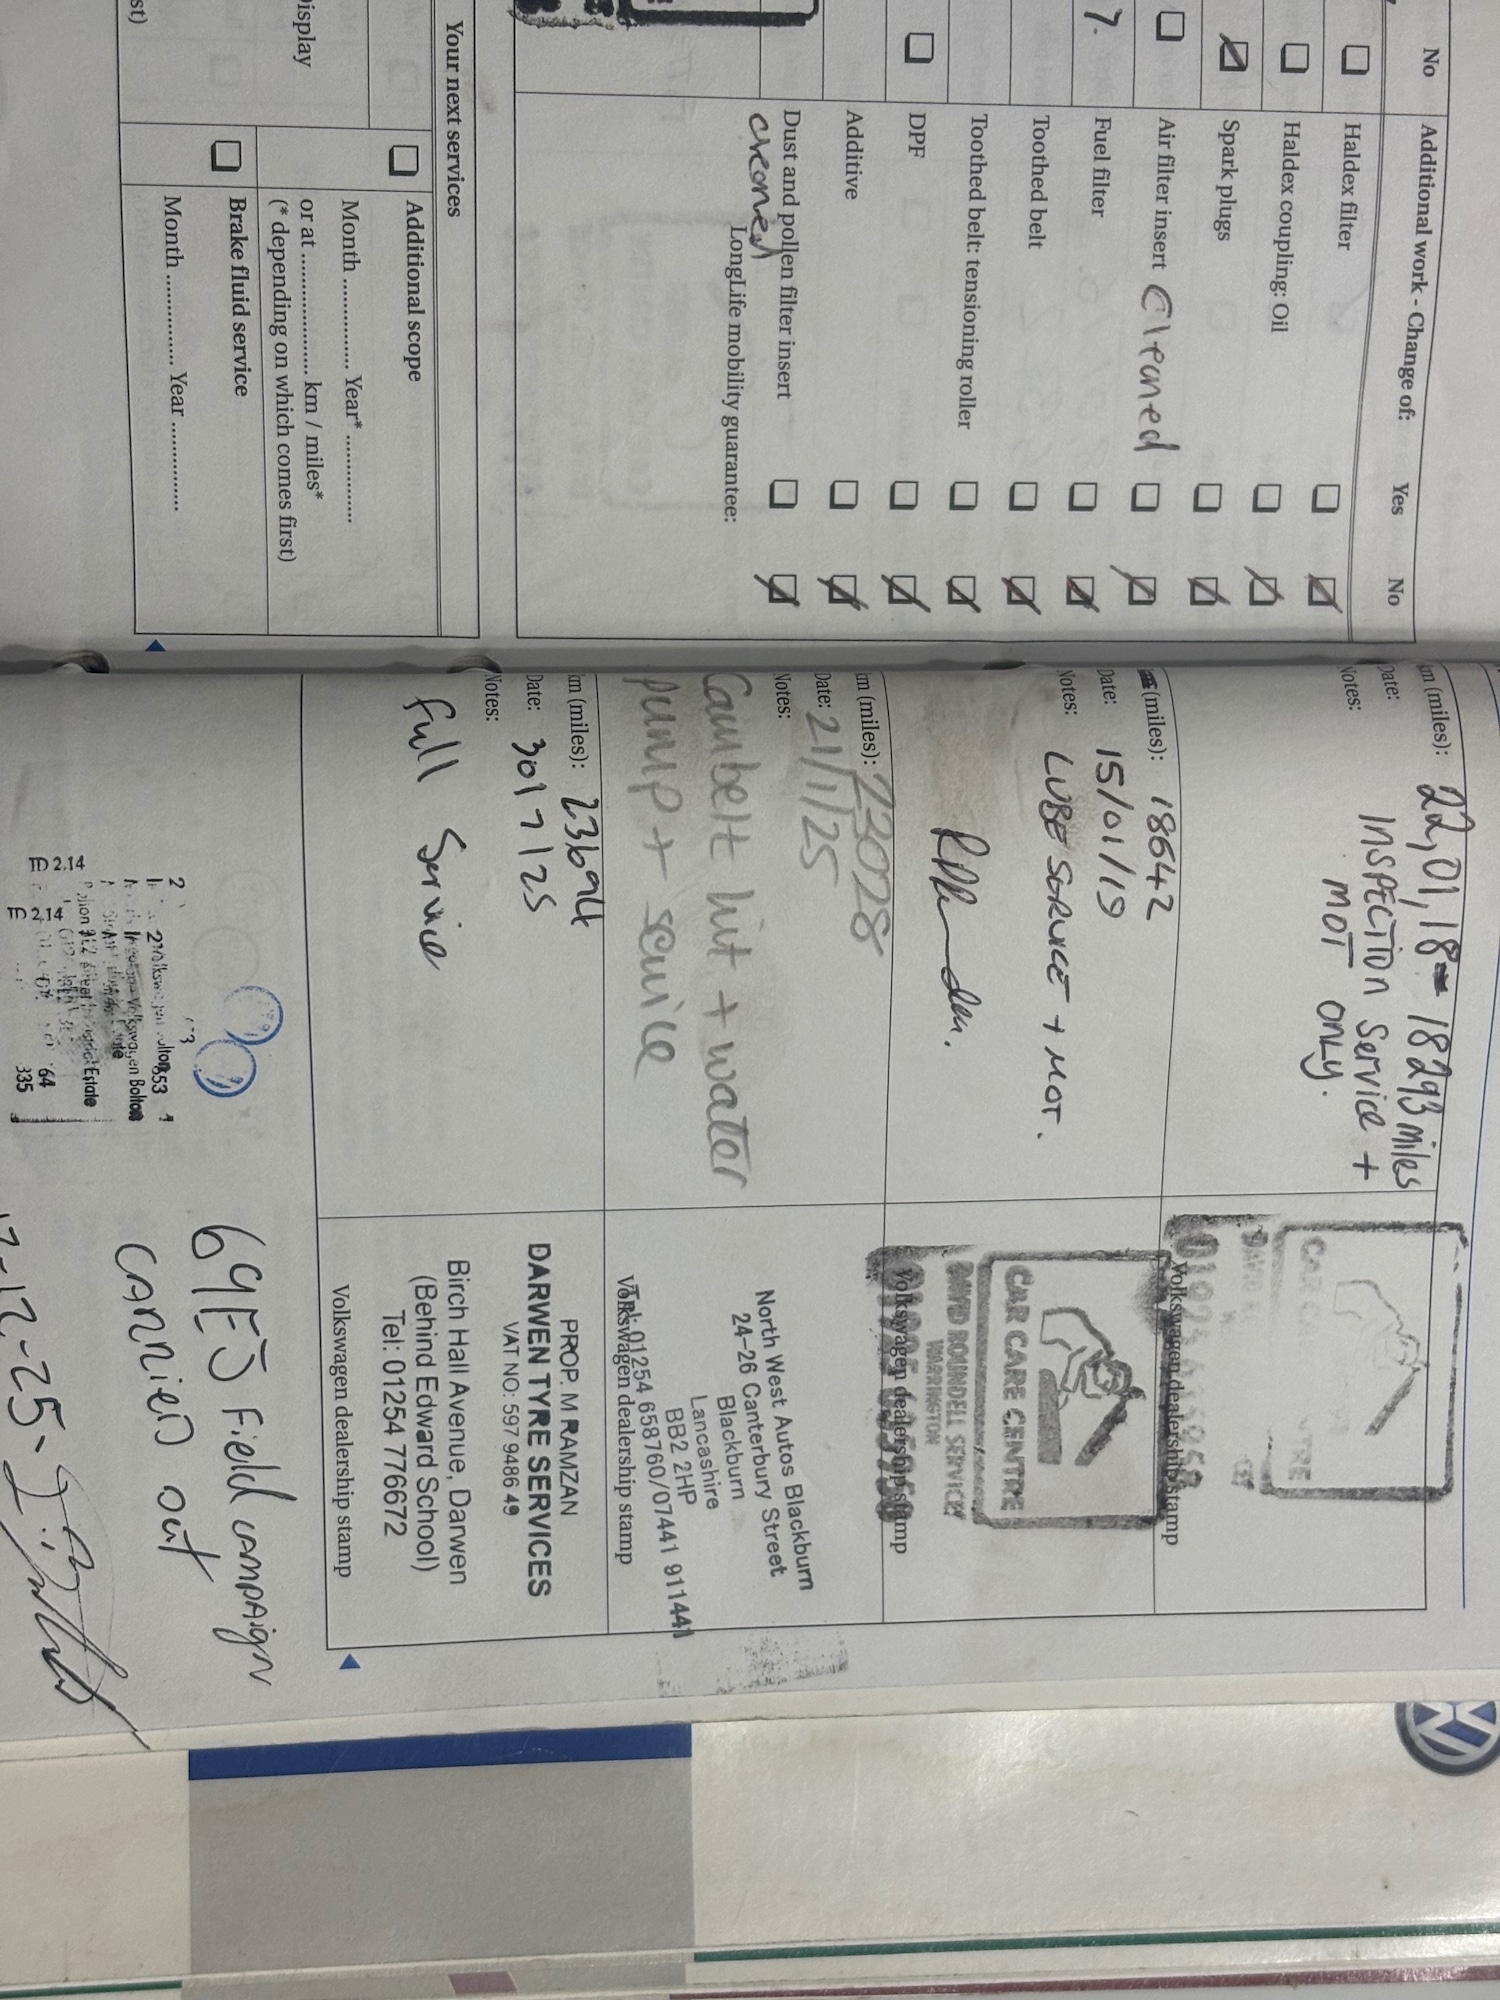 No
Additional work - Change of:
Yes
No
Haldex filter
Haldex coupling: Oil
Spark plugs
Air filter insert Cleaned
Fuel filter
Toothed belt
Toothed belt: tensioning roller
DPF
Additive
Dust and pollen filter insert
cleaned
LongLife mobility guarantee:
Your next services
Display
st)
Additional scope
Month .............. Year* ..............
or at .................... km / miles*
(* depending on which comes first)
Brake fluid service
Month .............. Year ..............
km (miles): 22,01,18 - 18293 miles
Date: INSPECTION Service +
Notes: MOT ONLY.
CAR CARE CENTRE
Volkswagen dealership stamp
(miles): 18642
Date: 15/01/19
Notes: LUBE SERVICE + MOT.
CAR CARE CENTRE
DAVID ROUNDELL SERVICES
WARRINGTON
Volkswagen dealership stamp
km (miles): 23028
Date: 21/1/25
Notes:
Cambelt kit + water
pump + service
North West Autos Blackburn
24-26 Canterbury Street
Blackburn
Lancashire
BB2 2HP
Tel: 01254 658760/07441 911441
Volkswagen dealership stamp
km (miles): 23694
Date: 30/7/25
Notes:
Full Service
PROP. M RAMZAN
DARWEN TYRE SERVICES
VAT NO: 597 9486 49
Birch Hall Avenue, Darwen
(Behind Edward School)
Tel: 01254 776672
Volkswagen dealership stamp
69EJ Field campaign
carried out
Volkswagen Bolton
Estate
2.14
2.14
64
335